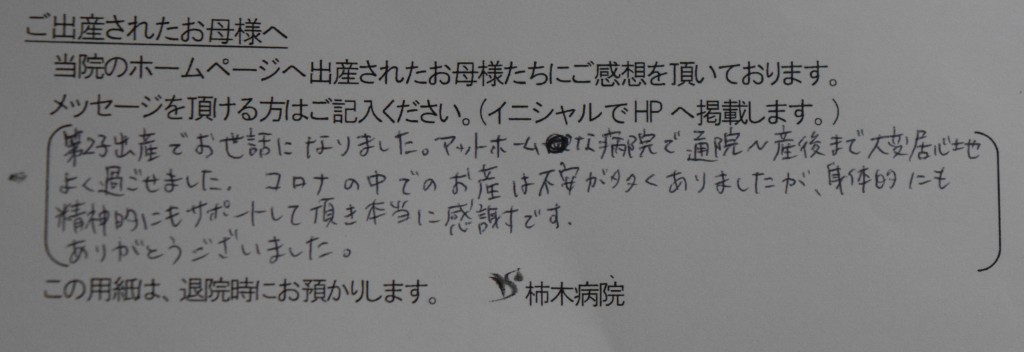 ご出産されたお母様へ
当院のホームページへ出産されたお母様たちにご感想を頂いております。
メッセージを頂ける方はご記入ください。(イニシャルでHPへ掲載します。)
第2子出産でお世話になりました。アットホームな病院で通院~産後まで大変居心地
よく過ごせました. コロナの中でのお産は不安が多くありましたが、身体的にも
精神的にもサポートして頂き本当に感謝です.
ありがとうございました。
この用紙は、退院時にお預かりします。 柿木病院